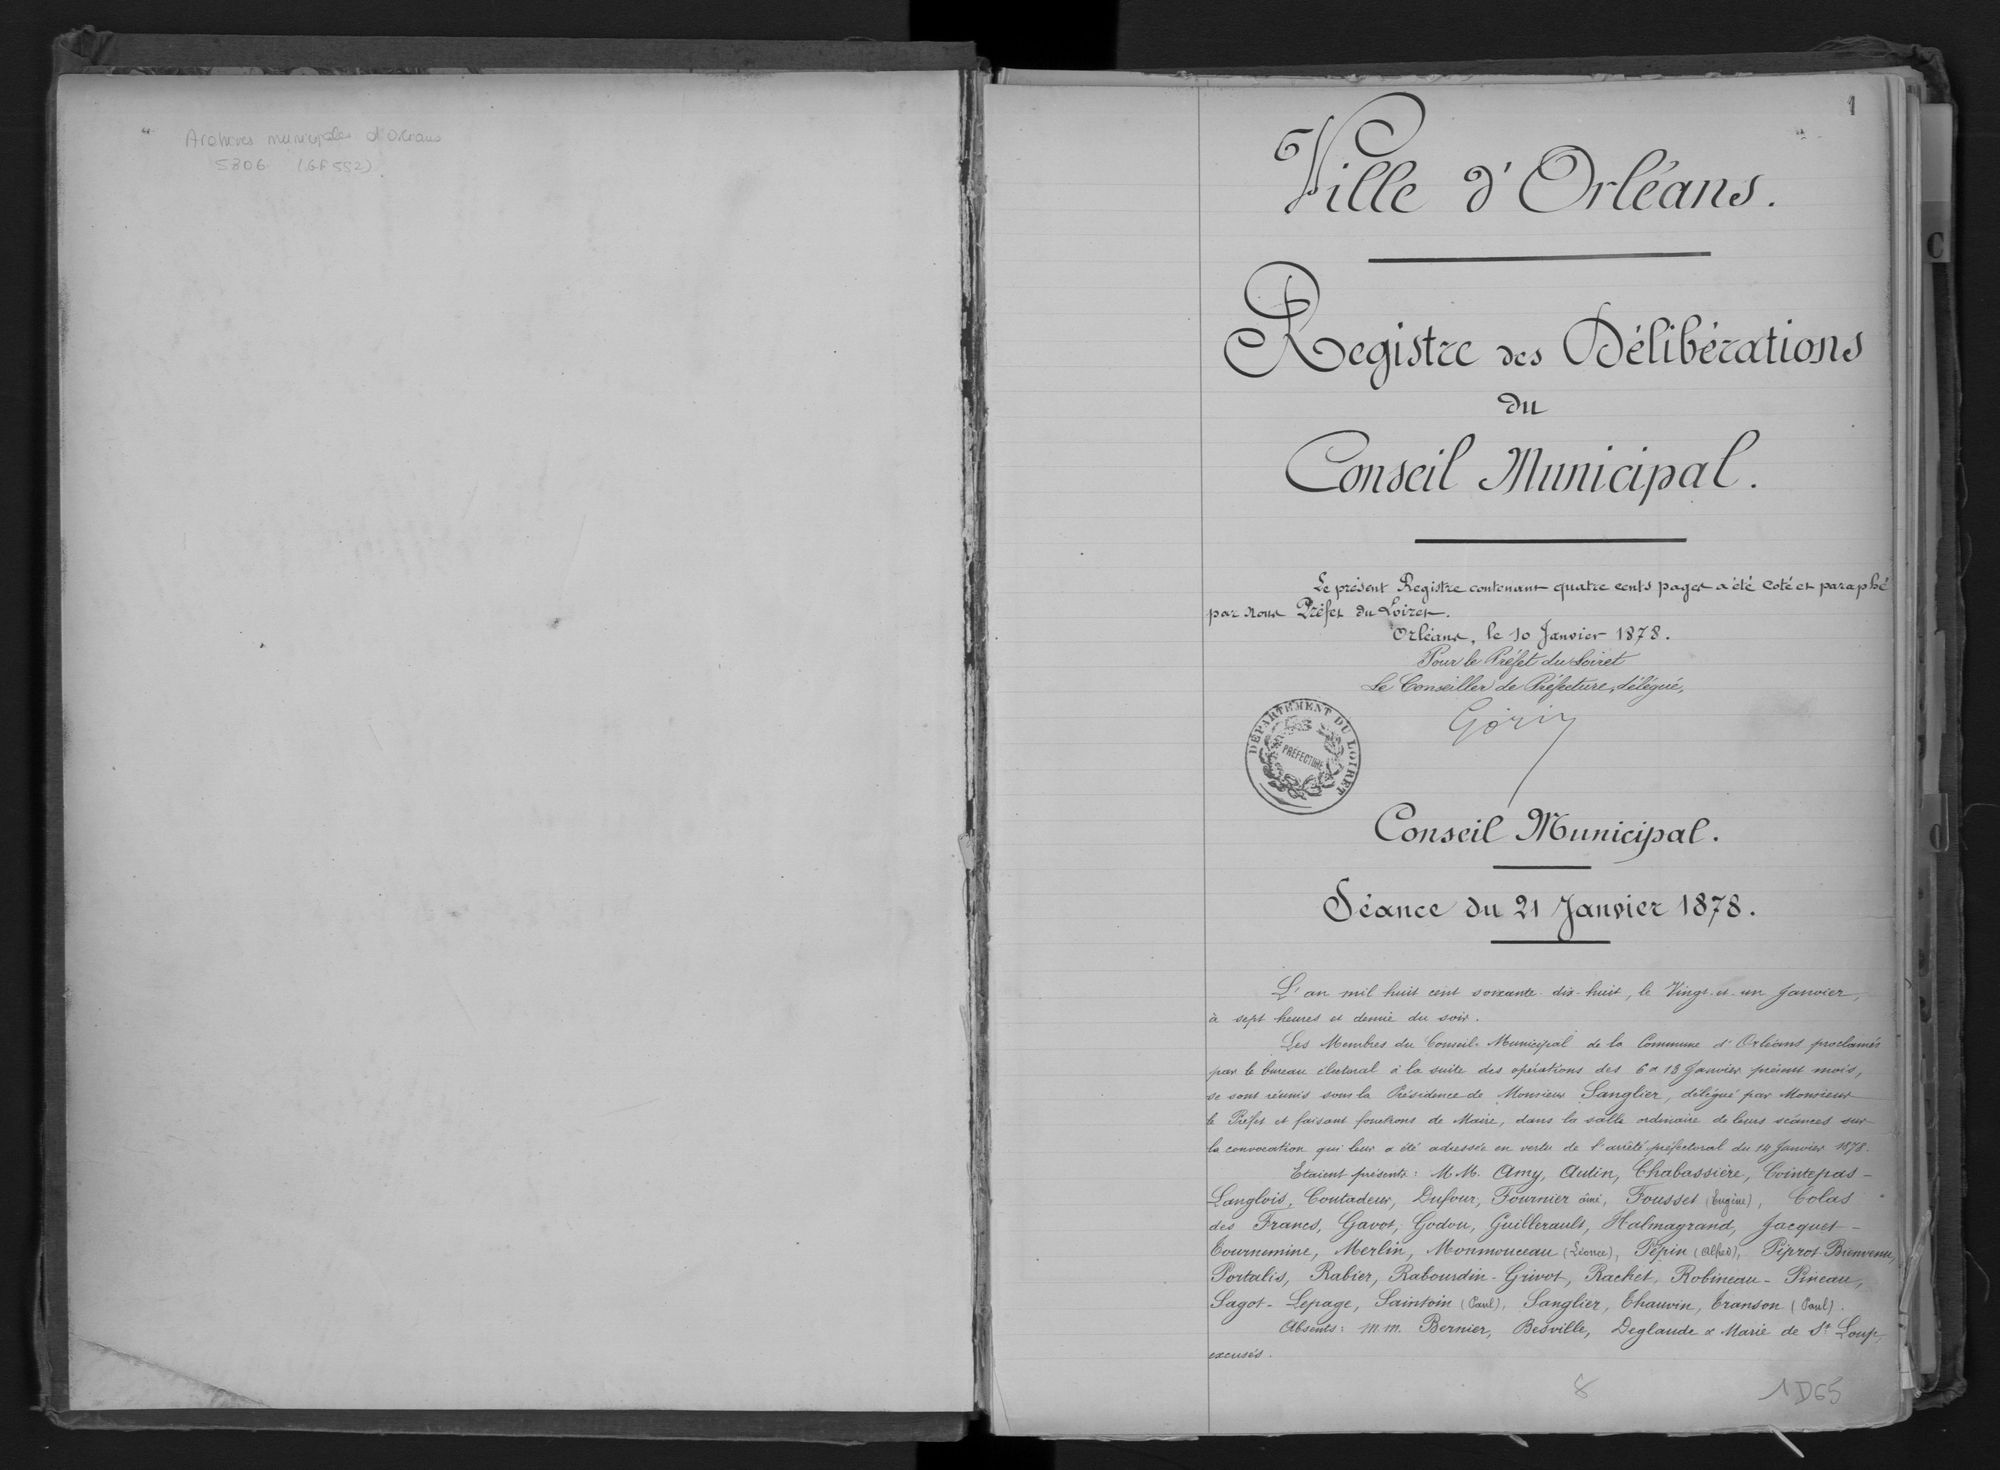 Archives municipales d'Orléans
5806 (GF 552)
1
Ville d'Orléans.
Registre des Délibérations
du
Conseil Municipal.
Le présent Registre contenant quatre cents pages a été coté et paraphé
par nous Préfet du Loiret.
Orléans, le 10 Janvier 1878.
Pour le Préfet du Loiret
Le Conseiller de Préfecture, délégué,
DÉPARTEMENT DU LOIRET
PRÉFECTURE
Conseil Municipal.
Séance du 21 Janvier 1878.
L'an mil huit cent soixante-dix-huit, le Vingt-et-un Janvier,
à sept heures et demie du soir.
Les Membres du Conseil Municipal de la Commune d'Orléans proclamés
par le bureau électoral à la suite des opérations des 6 & 13 Janvier présent mois,
se sont réunis sous la Présidence de Monsieur Sanglier, délégué par Monsieur
le Préfet et faisant fonctions de Maire, dans la salle ordinaire de leurs séances sur
la convocation qui leur a été adressée en vertu de l'arrêté préfectoral du 14 Janvier 1878.
Etaient présents : M.M. Amy, Autin, Chabassière, Cointepas-
Langlois, Coutadeur, Dufour, Fournier aîné, Fousset (Eugène), Colas
des Francs, Gavot, Godou, Guillerault, Halmagrand, Jacquet-
Tournemine, Merlin, Monmouceau (Léonce), Pépin (Alfred), Piprot-Bienvenu,
Portalis, Rabier, Rabourdin-Grivot, Rachet, Robineau-Pineau,
Sagot-Lepage, Saintoin (Paul), Sanglier, Thauvin, Transon (Paul).
Absents : M.M. Bernier, Besville, Deglaude & Marié de St Loup,
excusés.
8
1D65